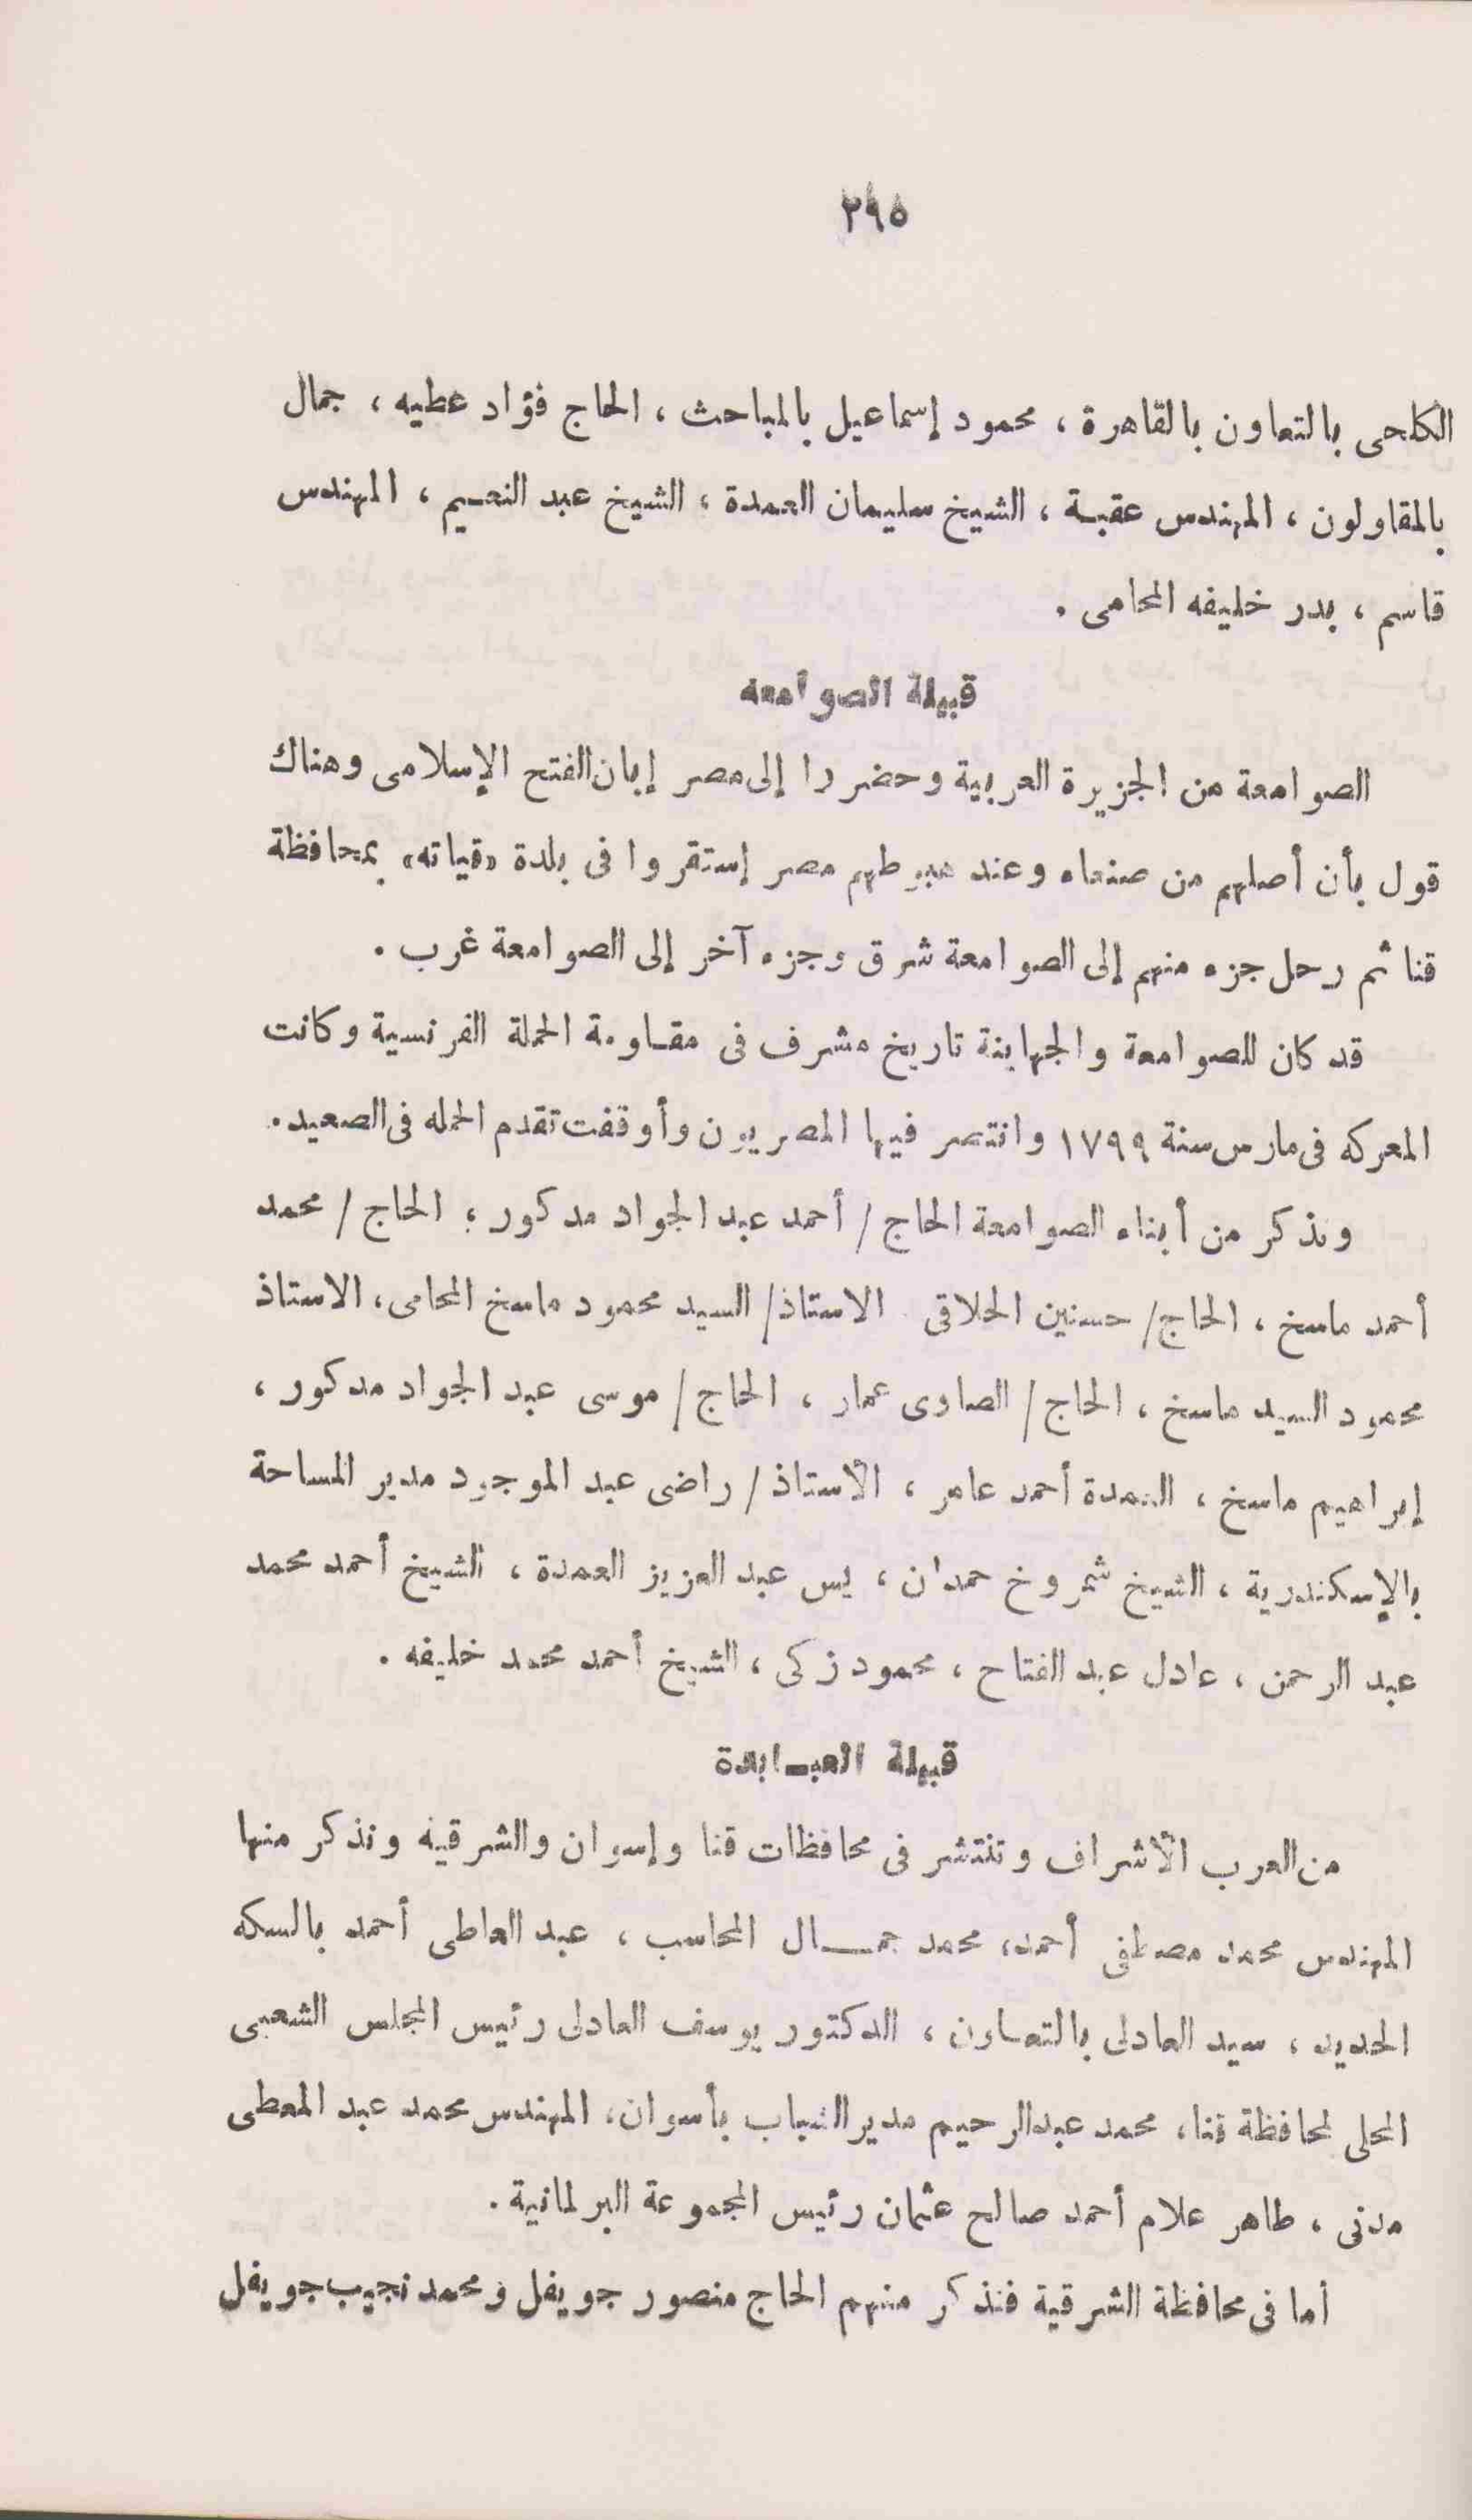 ٢٩٥
الكلحى بالتعاون بالقاهرة ، محمود إسماعيل بالمباحث ، الحاج فؤاد عطيه ، جمال
بالمقاولون ، المهندس عقبة ، الشيخ سليمان العمدة ، الشيخ عبد النعيم ، المهندس
قاسم ، بدر خليفه المحامى .
قبيلة الصوامعه
الصوامعة من الجزيرة العربية وحضروا إلى مصر إبان الفتح الإسلامى وهناك
قول بأن أصلهم من صنعاء وعند هبوطهم مصر إستقروا فى بلدة «قياته» بمحافظة
قنا ثم رحل جزء منهم إلى الصوامعة شرق وجزء آخر إلى الصوامعة غرب .
قد كان للصوامعة والجهاينة تاريخ مشرف فى مقاومة الحملة الفرنسية وكانت
المعركه فى مارس سنة ١٧٩٩ وانتصر فيها المصريون وأوقفت تقدم الحمله فى الصعيد .
ونذكر من أبناء الصوامعة الحاج / أحمد عبد الجواد مدكور ؛ الحاج / محمد
أحمد ماسخ ، الحاج / حسنين الحلاقى الاستاذ / السيد محمود ماسخ المحامى ، الاستاذ
محمود السيد ماسخ ، الحاج / الصاوى عمار ، الحاج / موسى عبد الجواد مدكور ،
إبراهيم ماسخ ، العمدة أحمد عامر ، الأستاذ / راضى عبد الموجود مدير المساحة
بالإسكندرية ، الشيخ شمروخ حمدان ، يس عبد العزيز العمدة ، الشيخ أحمد محمد
عبد الرحمن ، عادل عبد الفتاح ، محمود زكى ، الشيخ أحمد محمد خليفه .
قبيلة العبابدة
من العرب الأشراف وتنتشر فى محافظات قنا وإسوان والشرقيه ونذكر منها
المهندس محمد مصطفى أحمد، محمد جمال المحاسب ، عبد العاطى أحمد بالسكه
الحديد ، سيد العادلى بالتعاون ، الدكتور يوسف العادلى رئيس المجلس الشعبى
المحلى لمحافظة قنا، محمد عبدالرحيم مدير الشباب بأسوان، المهندس محمد عبد المعطى
مدنى ، طاهر علام أحمد صالح عثمان رئيس المجموعة البرلمانية .
أما فى محافظة الشرقية فنذكر منهم الحاج منصور جويفل ومحمد نجيب جويفل